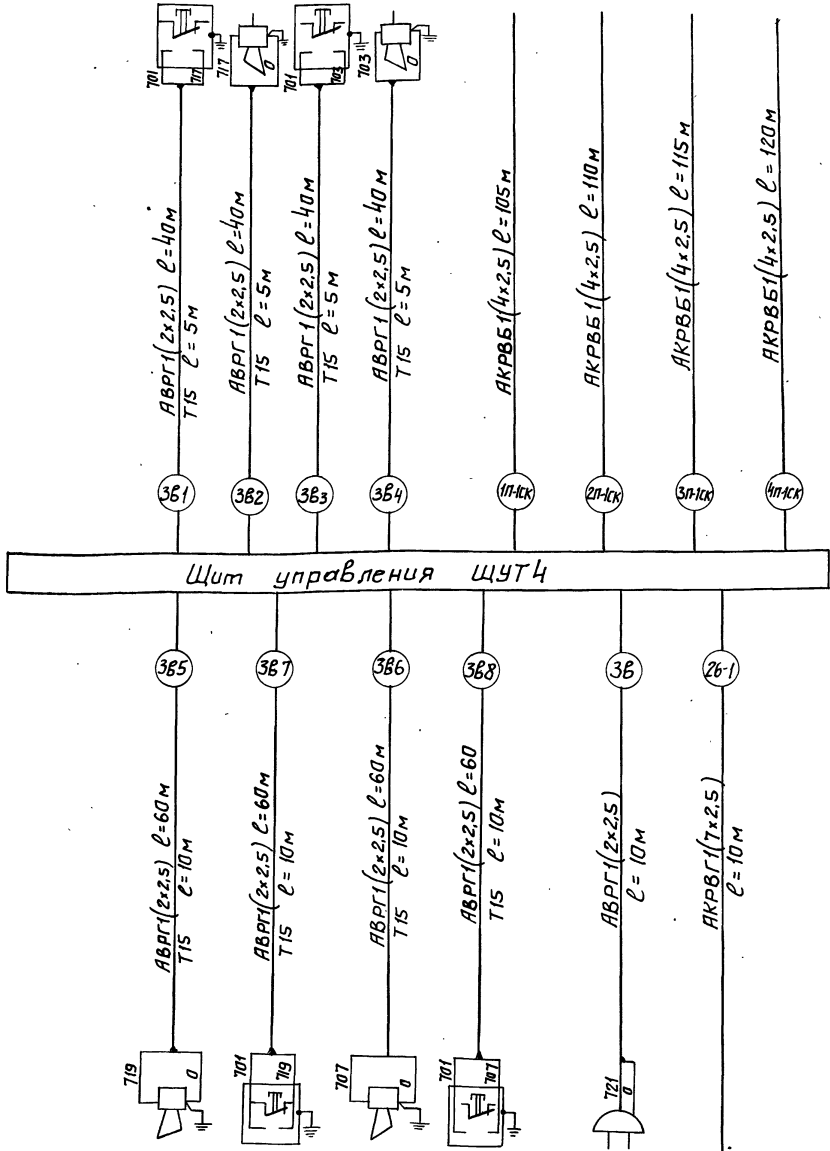 701
717
717
0
701
703
703
0
АВРГ1(2х2,5) ℓ=40м
Т15 ℓ=5м
АВРГ1(2х2,5) ℓ=40м
Т15 ℓ=5м
АВРГ1(2х2,5) ℓ=40м
Т15 ℓ=5м
АВРГ1(2х2,5) ℓ=40м
Т15 ℓ=5м
АКРВБ1(4х2,5) ℓ=105м
АКРВБ1(4х2,5) ℓ=110м
АКРВБ1(4х2,5) ℓ=115м
АКРВБ1(4х2,5) ℓ=120м
3в1
3в2
3в3
3в4
1п-1ск
2п-1ск
3п-1ск
4п-1ск
Щит управления ЩУТ4
3в5
3в7
3в6
3в8
3в
2в-1
АВРГ1(2х2,5) ℓ=60м
Т15 ℓ=10м
АВРГ1(2х2,5) ℓ=60м
Т15 ℓ=10м
АВРГ1(2х2,5) ℓ=60м
Т15 ℓ=10м
АВРГ1(2х2,5) ℓ=60
Т15 ℓ=10м
АВРГ1(2х2,5)
ℓ=10м
АКРВГ1(7х2,5)
ℓ=10м
719
0
701
719
707
0
701
707
721
0